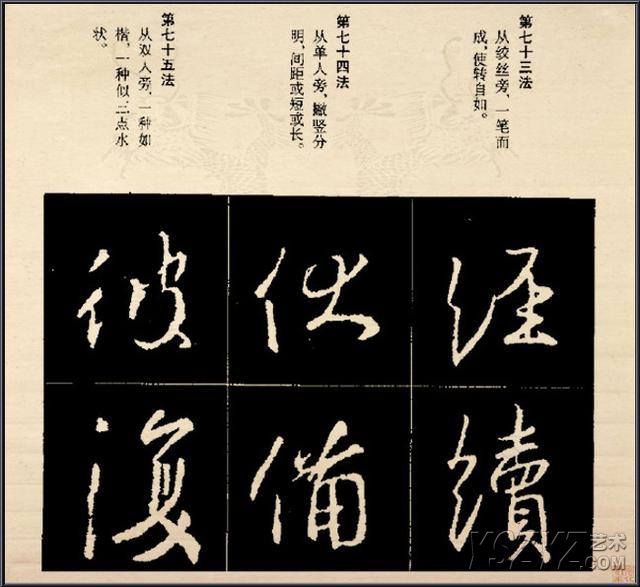 第七十三法
从绞丝旁，一笔而
成，使转自如。
第七十四法
从单人旁，撇竖分
明，间距或短或长。
第七十五法
从双人旁，一种如
楷，一种似三点水
状。
經
續
伏
備
彼
復
YSZYZ艺术
.COM